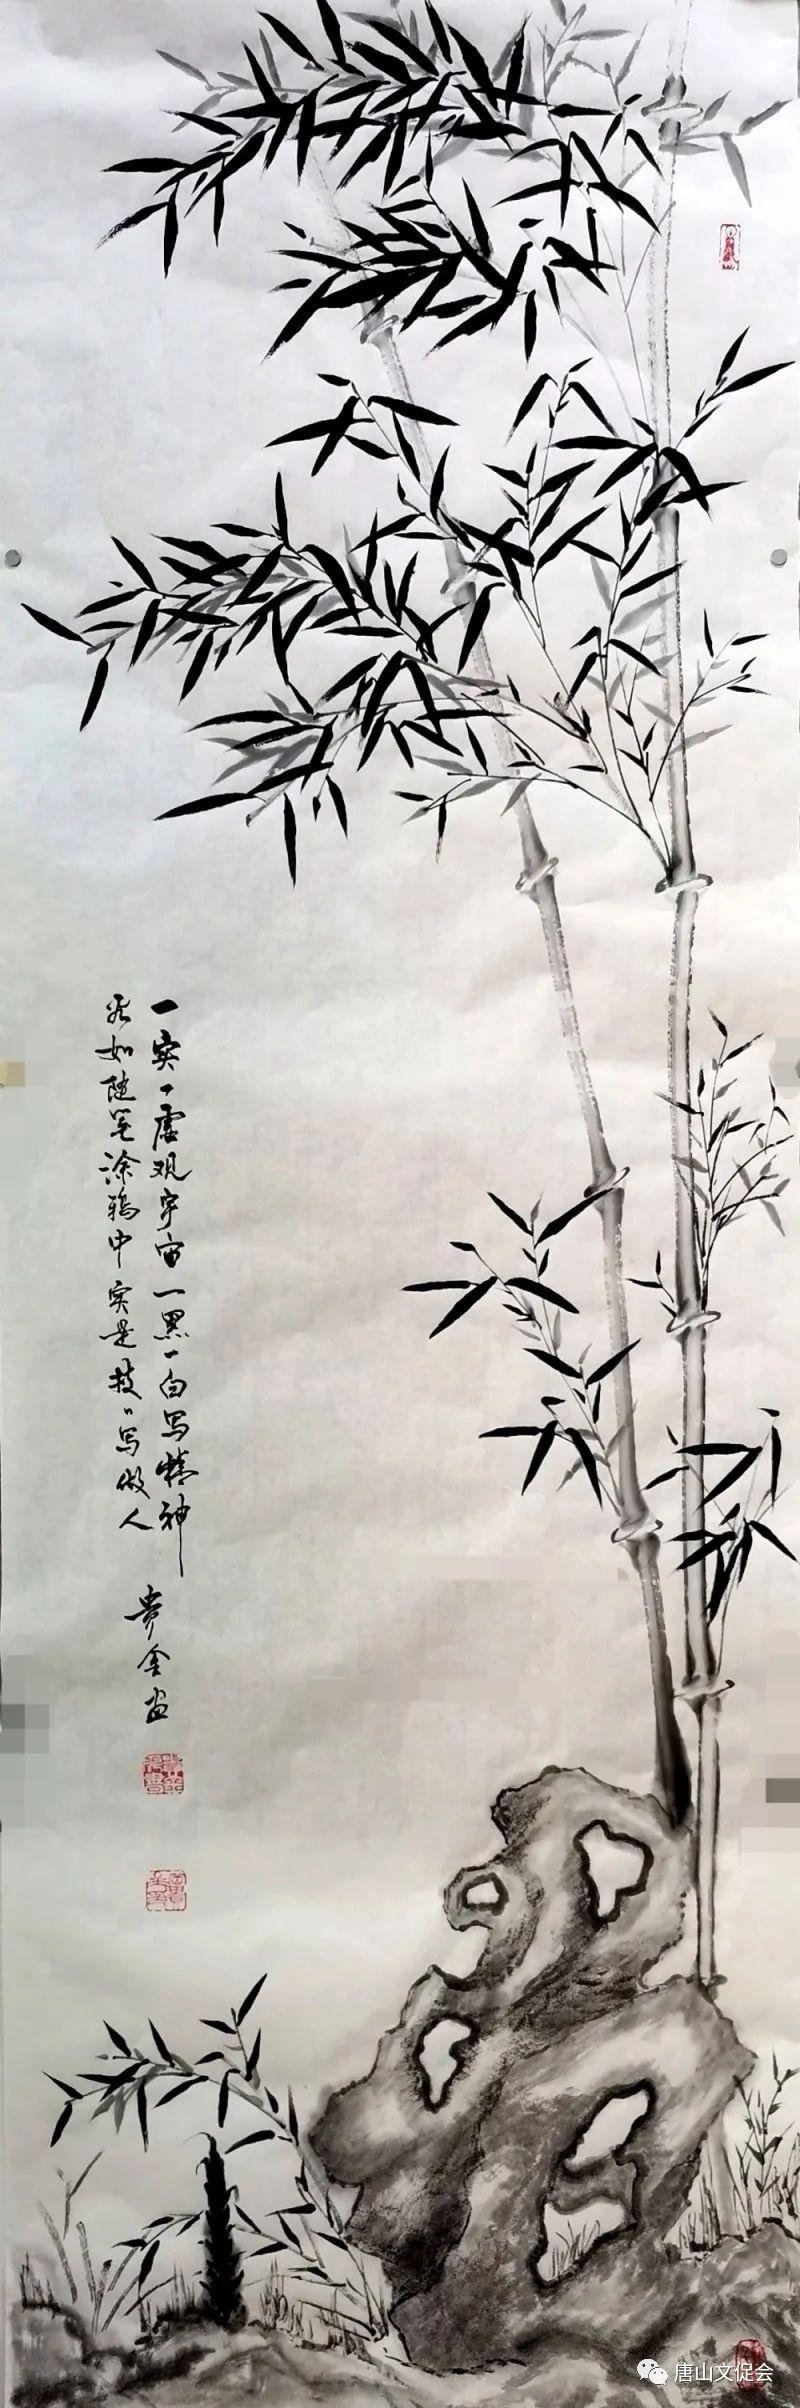 一实一虚观宇宙一黑一白写精神
如随笔涂鸦中实是枝〻写做人
贵金画
唐山文促会